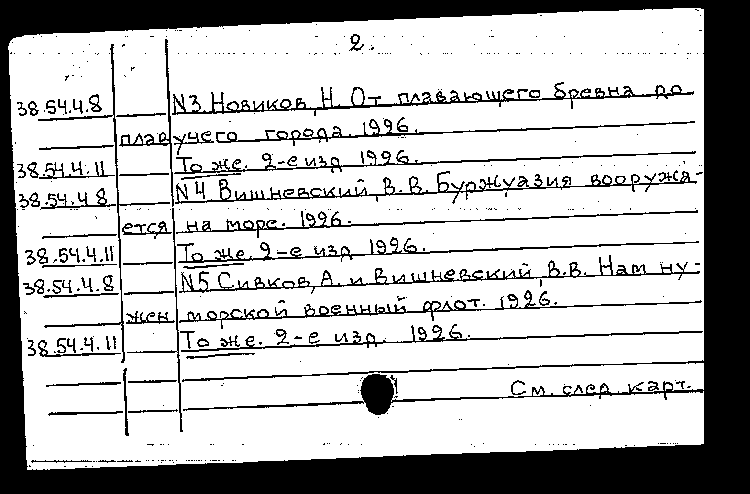 2.
38.54.4.8 N3. Новиков, Н. От плавающего бревна до
плавучего города. 1926.
38.54.4.11 То же. 2-е изд 1926.
38.54.4 8 N4 Вишневский, В. В. Буржуазия вооружа-
ется на море. 1926.
38.54.4.11 То же. 2-е изд 1926.
38.54.4.8 N5 Сивков, А. и Вишневский, В.В. Нам ну-
жен морской военный флот. 1926.
38.54.4.11 То же. 2-е изд. 1926.
См. след. карт.